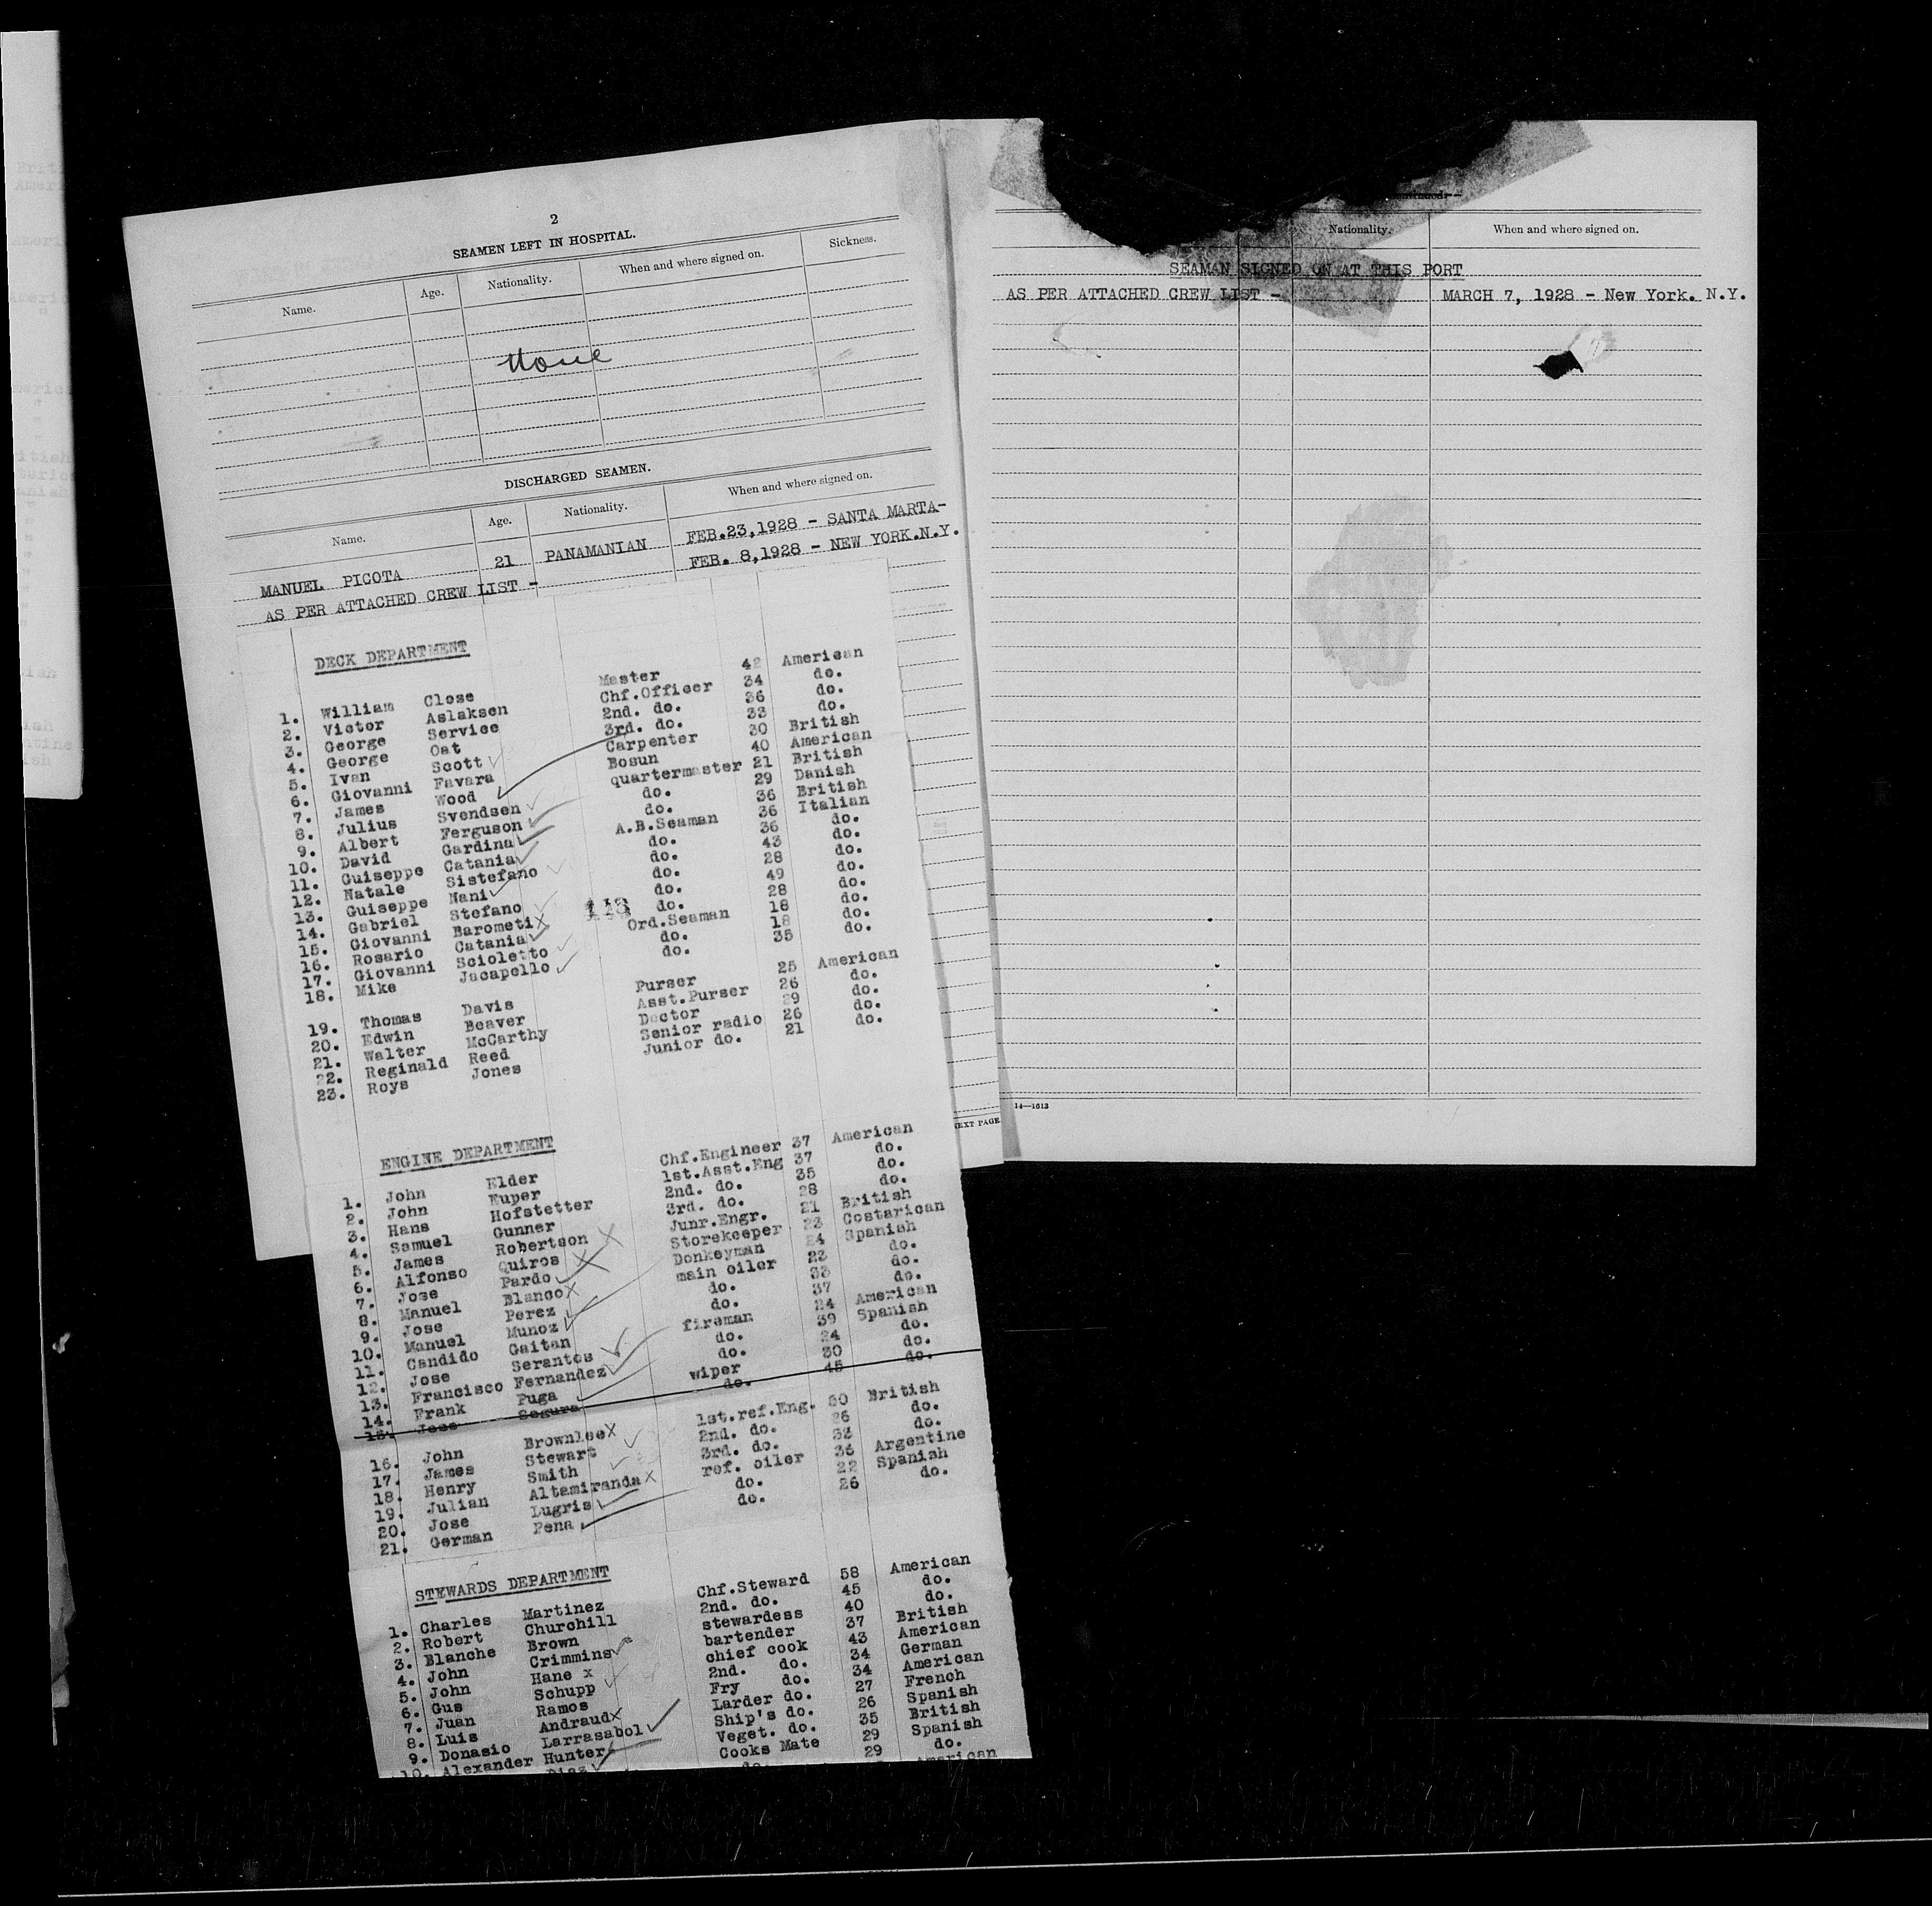 2
SEAMEN LEFT IN HOSPITAL.
Name. Age. Nationality. When and where signed on. Sickness.
None
DISCHARGED SEAMEN.
Name. Age. Nationality. When and where signed on.
MANUEL PICOTA 21 PANAMANIAN FEB.23,1928 - SANTA MARTA-
AS PER ATTACHED CREW LIST - FEB. 8,1928 - NEW YORK.N.Y.
DECK DEPARTMENT
1. William Close Master 42 American
2. Victor Aslaksen Chf.Officer 34 do.
3. George Service 2nd. do. 36 do.
4. George Oat 3rd. do. 33 do.
5. Ivan Scott Carpenter 30 British
6. Giovanni Favara Bosun 40 American
7. James Wood quartermaster 21 British
8. Julius Svendsen do. 29 Danish
9. Albert Ferguson do. 36 British
10. David Gardina A.B.Seaman 36 Italian
11. Guiseppe Catania do. 36 do.
12. Natale Sistefano do. 43 do.
13. Guiseppe Nani do. 28 do.
14. Gabriel Stefano do. 49 do.
15. Giovanni Barometi X 113 do. 28 do.
16. Rosario Catania Ord.Seaman 18 do.
17. Giovanni Scioletto do. 18 do.
18. Mike Jacapello do. 35 do.
19. Thomas Davis Purser 25 American
20. Edwin Beaver Asst.Purser 26 do.
21. Walter McCarthy Doctor 29 do.
22. Reginald Reed Senior radio 26 do.
23. Roys Jones Junior do. 21 do.
ENGINE DEPARTMENT
1. John Elder Chf.Engineer 37 American
2. John Euper 1st.Asst.Eng 37 do.
3. Hans Hofstetter 2nd. do. 35 do.
4. Samuel Gunner 3rd. do. 28 do.
5. James Robertson X Junr.Engr. 21 British
6. Alfonso Quiros X Storekeeper 23 Costarican
7. Jose Pardo Donkeyman 24 Spanish
8. Manuel Blanco X main oiler 23 do.
9. Jose Perez do. 33 do.
10. Manuel Munoz do. 37 do.
11. Candido Gaitan fireman 24 American
12. Jose Serantos do. 39 Spanish
13. Francisco Fernandez do. 24 do.
14. Frank Puga wiper 30 do.
15. Jose Segura do. 45 do.
16. John Brownlee X 1st.ref.Eng. 30 British
17. James Stewart 2nd. do. 26 do.
18. Henry Smith 3rd. do. 33 do.
19. Julian Altamiranda X ref. oiler 36 Argentine
20. Jose Lugris do. 22 Spanish
21. German Pena do. 26 do.
STEWARDS DEPARTMENT
1. Charles Martinez Chf.Steward 58 American
2. Robert Churchill 2nd. do. 45 do.
3. Blanche Brown stewardess 40 do.
4. John Crimmins bartender 37 British
5. John Hane x chief cook 43 American
6. Gus Schupp 2nd. do. 34 German
7. Juan Ramos Fry do. 34 American
8. Luis Andraud X Larder do. 27 French
9. Donasio Larrasabol Ship's do. 26 Spanish
10. Alexander Hunter Veget. do. 35 British
Diaz Cooks Mate 29 Spanish
do. 29 do.
American
NEXT PAGE
Nationality. When and where signed on.
SEAMAN SIGNED ON AT THIS PORT
AS PER ATTACHED CREW LIST - MARCH 7, 1928 - New York. N.Y.
14—1613